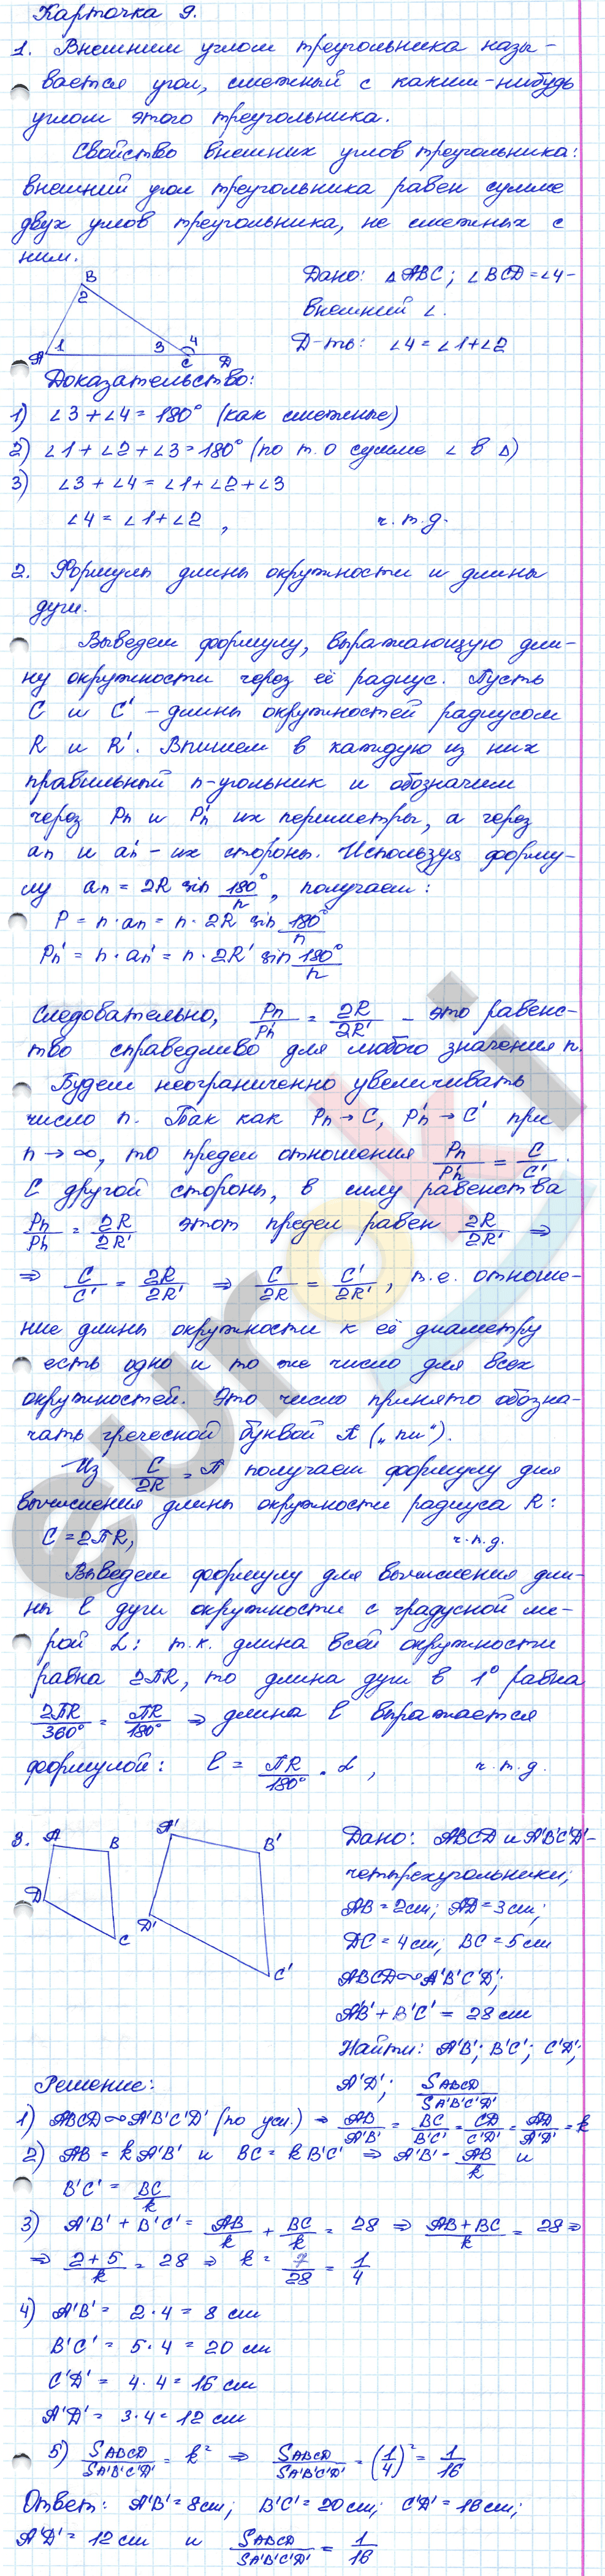 Карточка 9.
1. Внешним углом треугольника назы-
вается угол, смежный с каким-нибудь
углом этого треугольника.
Свойство внешних углов треугольника:
внешний угол треугольника равен сумме
двух углов треугольника, не смежных с
ним.
B
2
A
1
3
4
C
D
Дано: △ABC; ∠BCD=∠4-
внешний ∠.
Д-ть: ∠4=∠1+∠2
Доказательство:
1) ∠3+∠4=180° (как смежные)
2) ∠1+∠2+∠3=180° (по т. о сумме ∠ в △)
3) ∠3+∠4=∠1+∠2+∠3
∠4=∠1+∠2, ч.т.д.
2. Формулы длины окружности и длины
дуги.
Выведем формулу, выражающую дли-
ну окружности через её радиус. Пусть
C и C' - длины окружностей радиусом
R и R'. Впишем в каждую из них
правильный n-угольник и обозначим
через Pn и Pn' их периметры, а через
an и an' - их стороны. Используя форму-
лу an = 2R sin 180°/n, получаем:
P = n·an = n·2R sin 180°/n
Pn' = n·an' = n·2R' sin 180°/n
Следовательно, Pn/Pn' = 2R/2R' - это равенс-
тво справедливо для любого значения n.
Будем неограниченно увеличивать
число n. Так как Pn→C, Pn'→C' при
n→∞, то предел отношения Pn/Pn' = C/C'.
С другой стороны, в силу равенства
Pn/Pn' = 2R/2R' этот предел равен 2R/2R' ⇒
⇒ C/C' = 2R/2R' ⇒ C/2R = C'/2R', т.е. отноше-
ние длины окружности к её диаметру
есть одно и то же число для всех
окружностей. Это число принято обозна-
чать греческой буквой π („пи“).
Из C/2R = π получаем формулу для
вычисления длины окружности радиуса R:
C=2πR, ч.т.д.
Выведем формулу для вычисления дли-
ны l дуги окружности с градусной ме-
рой α: т.к. длина всей окружности
равна 2πR, то длина дуги в 1° равна
2πR/360° = πR/180° ⇒ длина l выражается
формулой: l = πR/180° · α, ч.т.д.
3.
A
B
D
C
A'
B'
D'
C'
Дано: ABCD и A'B'C'D'-
четырехугольники;
AB=2см; AD=3см;
DC=4см; BC=5см
ABCD∾A'B'C'D';
A'B'+B'C'=28см
Найти: A'B'; B'C'; C'D';
A'D'; SABCD/SA'B'C'D'
Решение:
1) ABCD∾A'B'C'D' (по усл.) ⇒ AB/A'B' = BC/B'C' = CD/C'D' = AD/A'D' = k
2) AB=kA'B' и BC=kB'C' ⇒ A'B'=AB/k и
B'C' = BC/k
3) A'B'+B'C' = AB/k + BC/k = 28 ⇒ AB+BC/k = 28 ⇒
⇒ 2+5/k = 28 ⇒ k = 7/28 = 1/4
4) A'B' = 2·4 = 8 см
B'C' = 5·4 = 20 см
C'D' = 4·4 = 16 см
A'D' = 3·4 = 12 см
5) SABCD/SA'B'C'D' = k² ⇒ SABCD/SA'B'C'D' = (1/4)² = 1/16
Ответ: A'B'=8см; B'C'=20см; C'D'=16см;
A'D'=12см и SABCD/SA'B'C'D' = 1/16
euroki